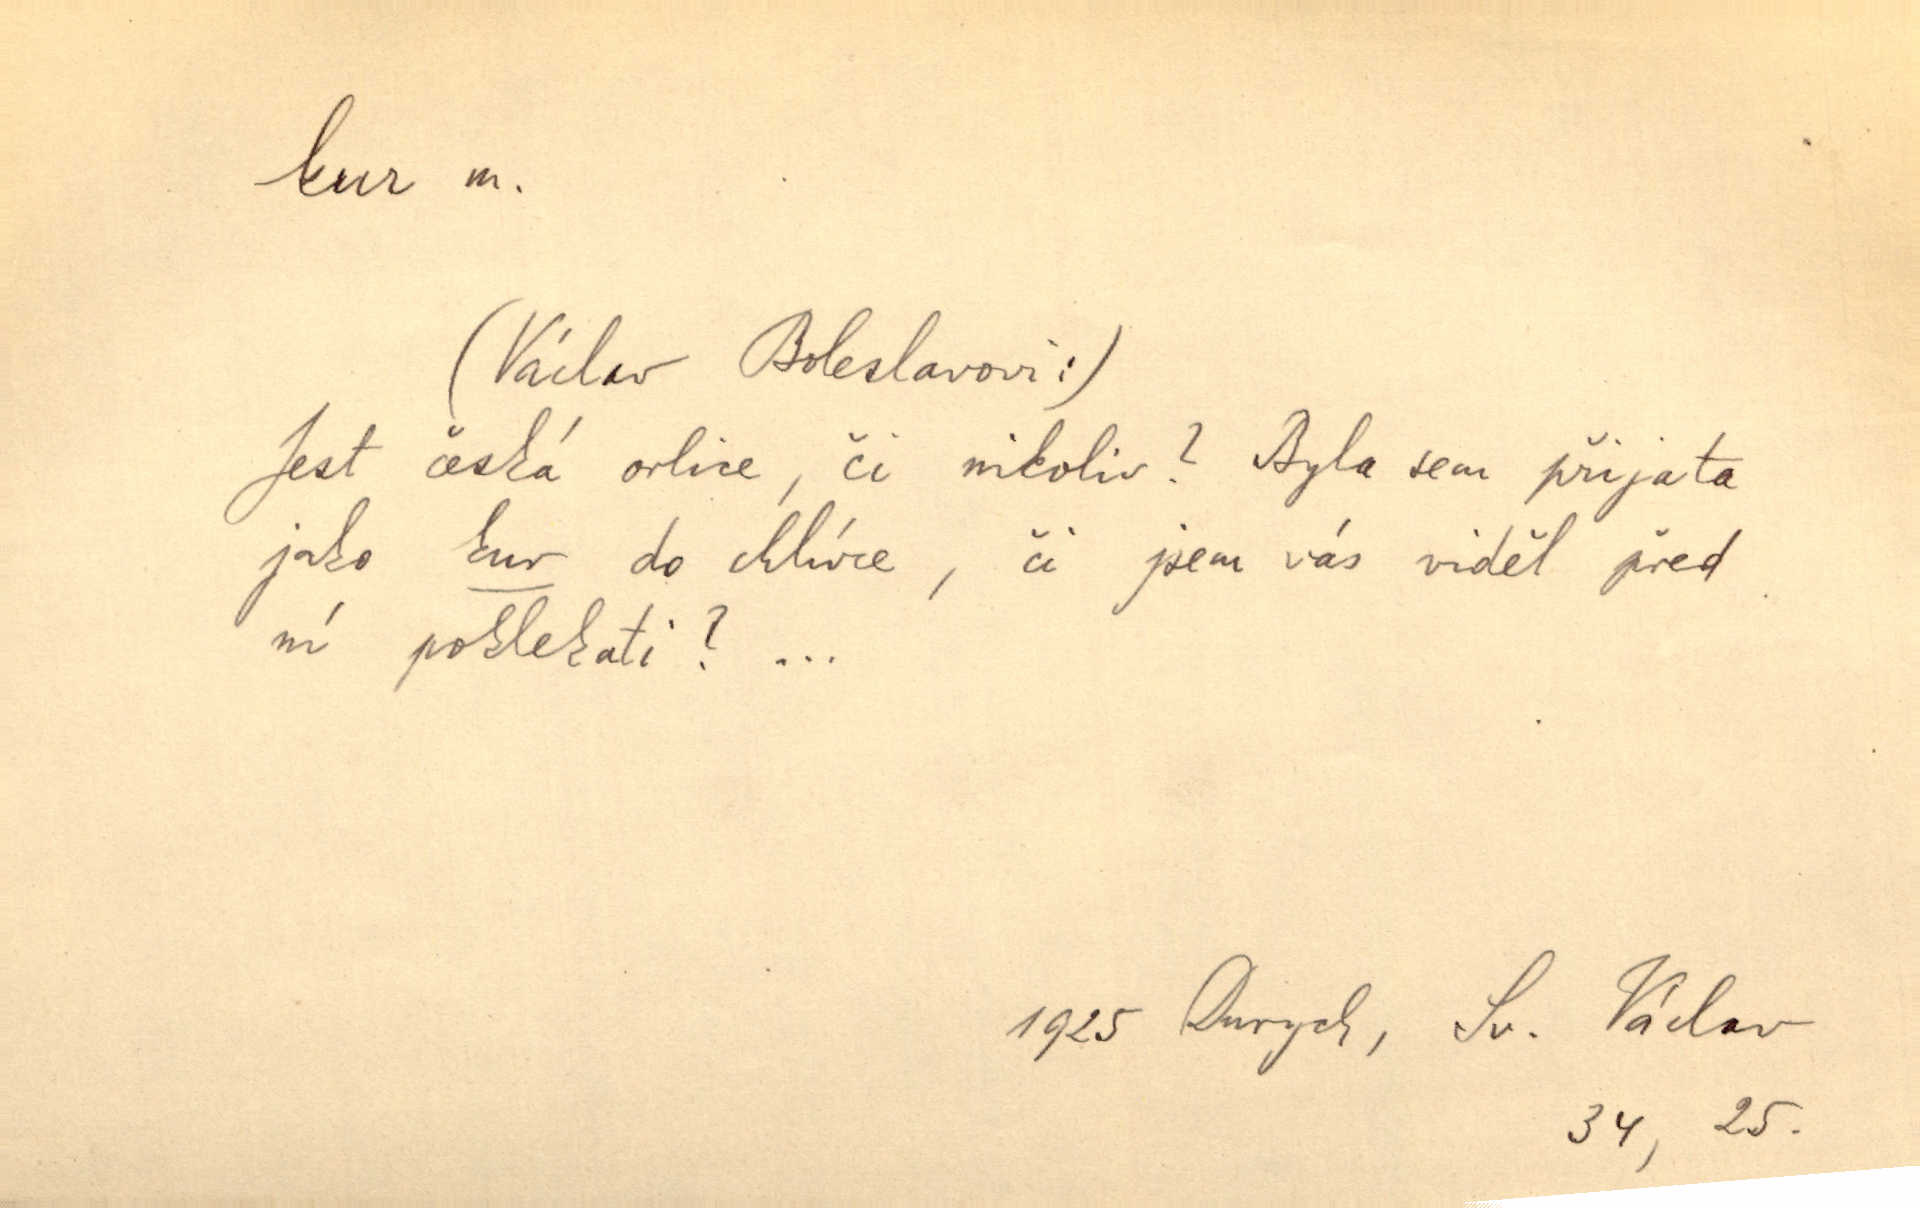 kur m.
(Václav Boleslavovi:)
Jest česká orlice, či nikoliv? Byla sem přijata
jako kur do chlívce, či jsem vás viděl před
ní poklekati? ...
1925 Durych, Sv. Václav
34, 25.